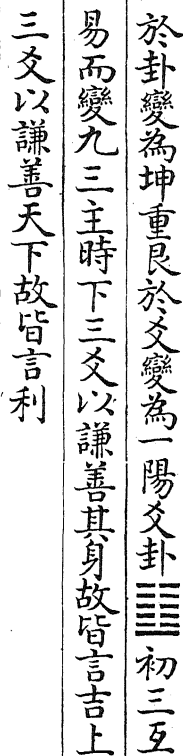 於卦變為坤重艮於爻變為一陽爻卦䷗初三互
易而變九三主時下三爻以謙善其身故皆言吉上
三爻以謙善天下故皆言利